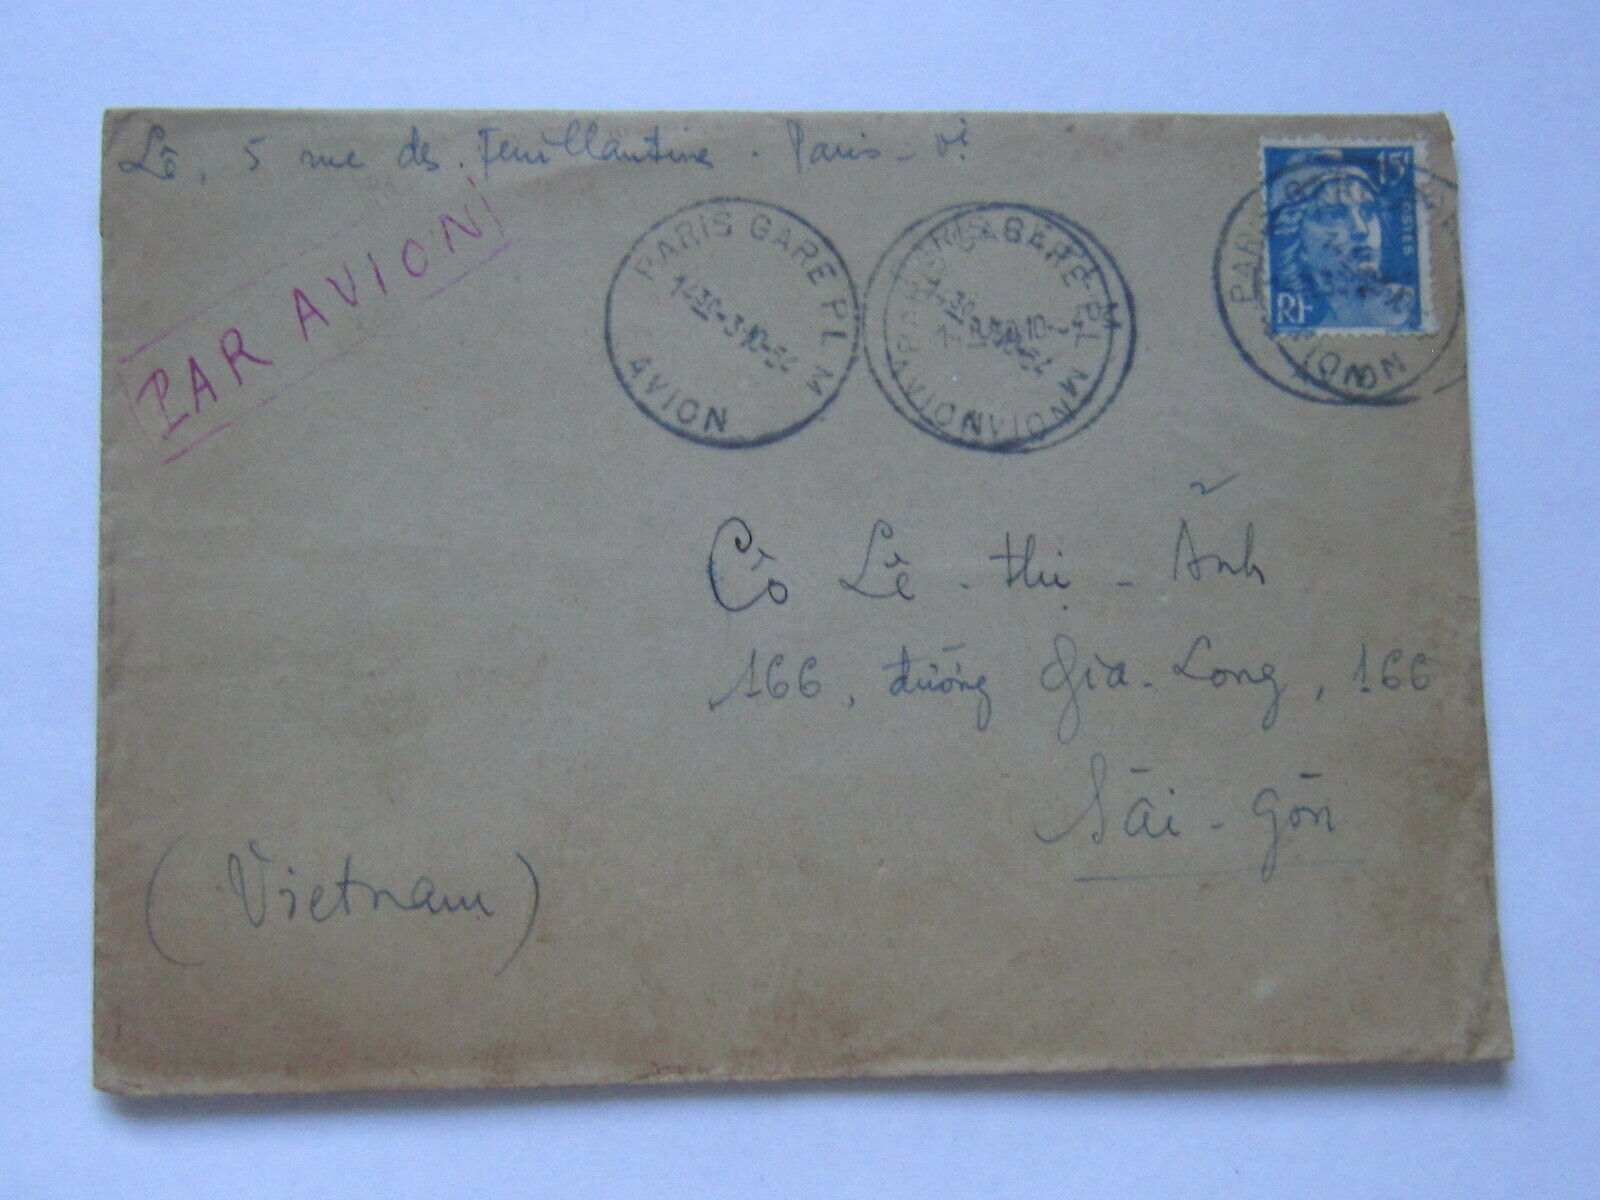 Lê, 5 rue des Feuillantine . Paris - Vè
PAR AVION
PARIS GARE PLM
14 30 - 3-10-54
AVION
PARIS GARE PLM
AVION
15F
POSTES
RF
Cô Lê - thị - Ảnh
166, đường Gia-Long, 166
Sài - gòn
(Vietnam)